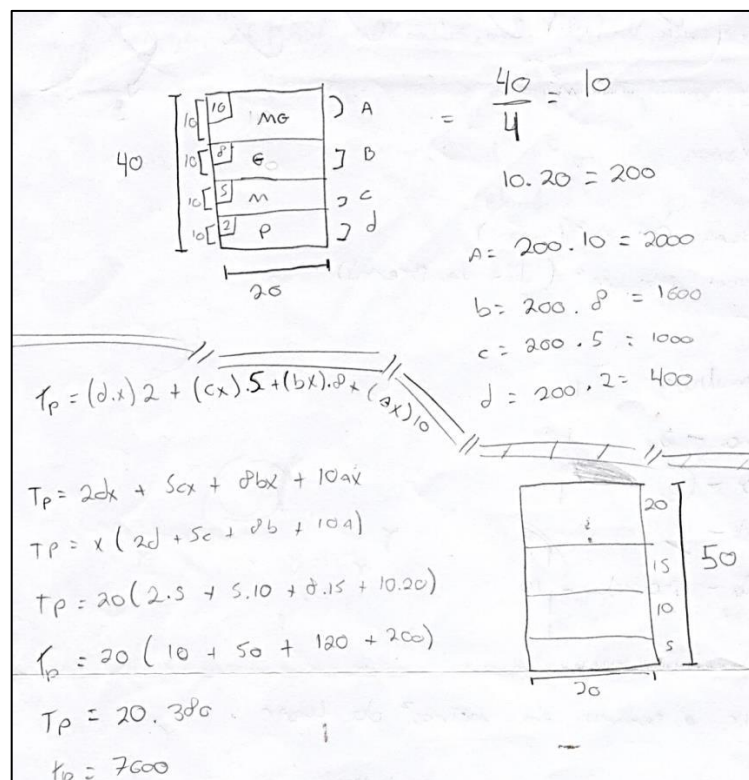 40
10 10 MG A
10 8 G B
10 5 M c
10 2 P d
20
= 40/4 = 10
10.20 = 200
A = 200.10 = 2000
b = 200.8 = 1600
c = 200.5 = 1000
d = 200.2 = 400
Tp = (d.x)2 + (cx).5 + (bx).8 + (ax)10
Tp = 2dx + 5cx + 8bx + 10ax
Tp = x(2d + 5c + 8b + 10a)
Tp = 20(2.5 + 5.10 + 8.15 + 10.20)
Tp = 20(10 + 50 + 120 + 200)
Tp = 20.380
tp = 7600
20
15
10
5
50
20